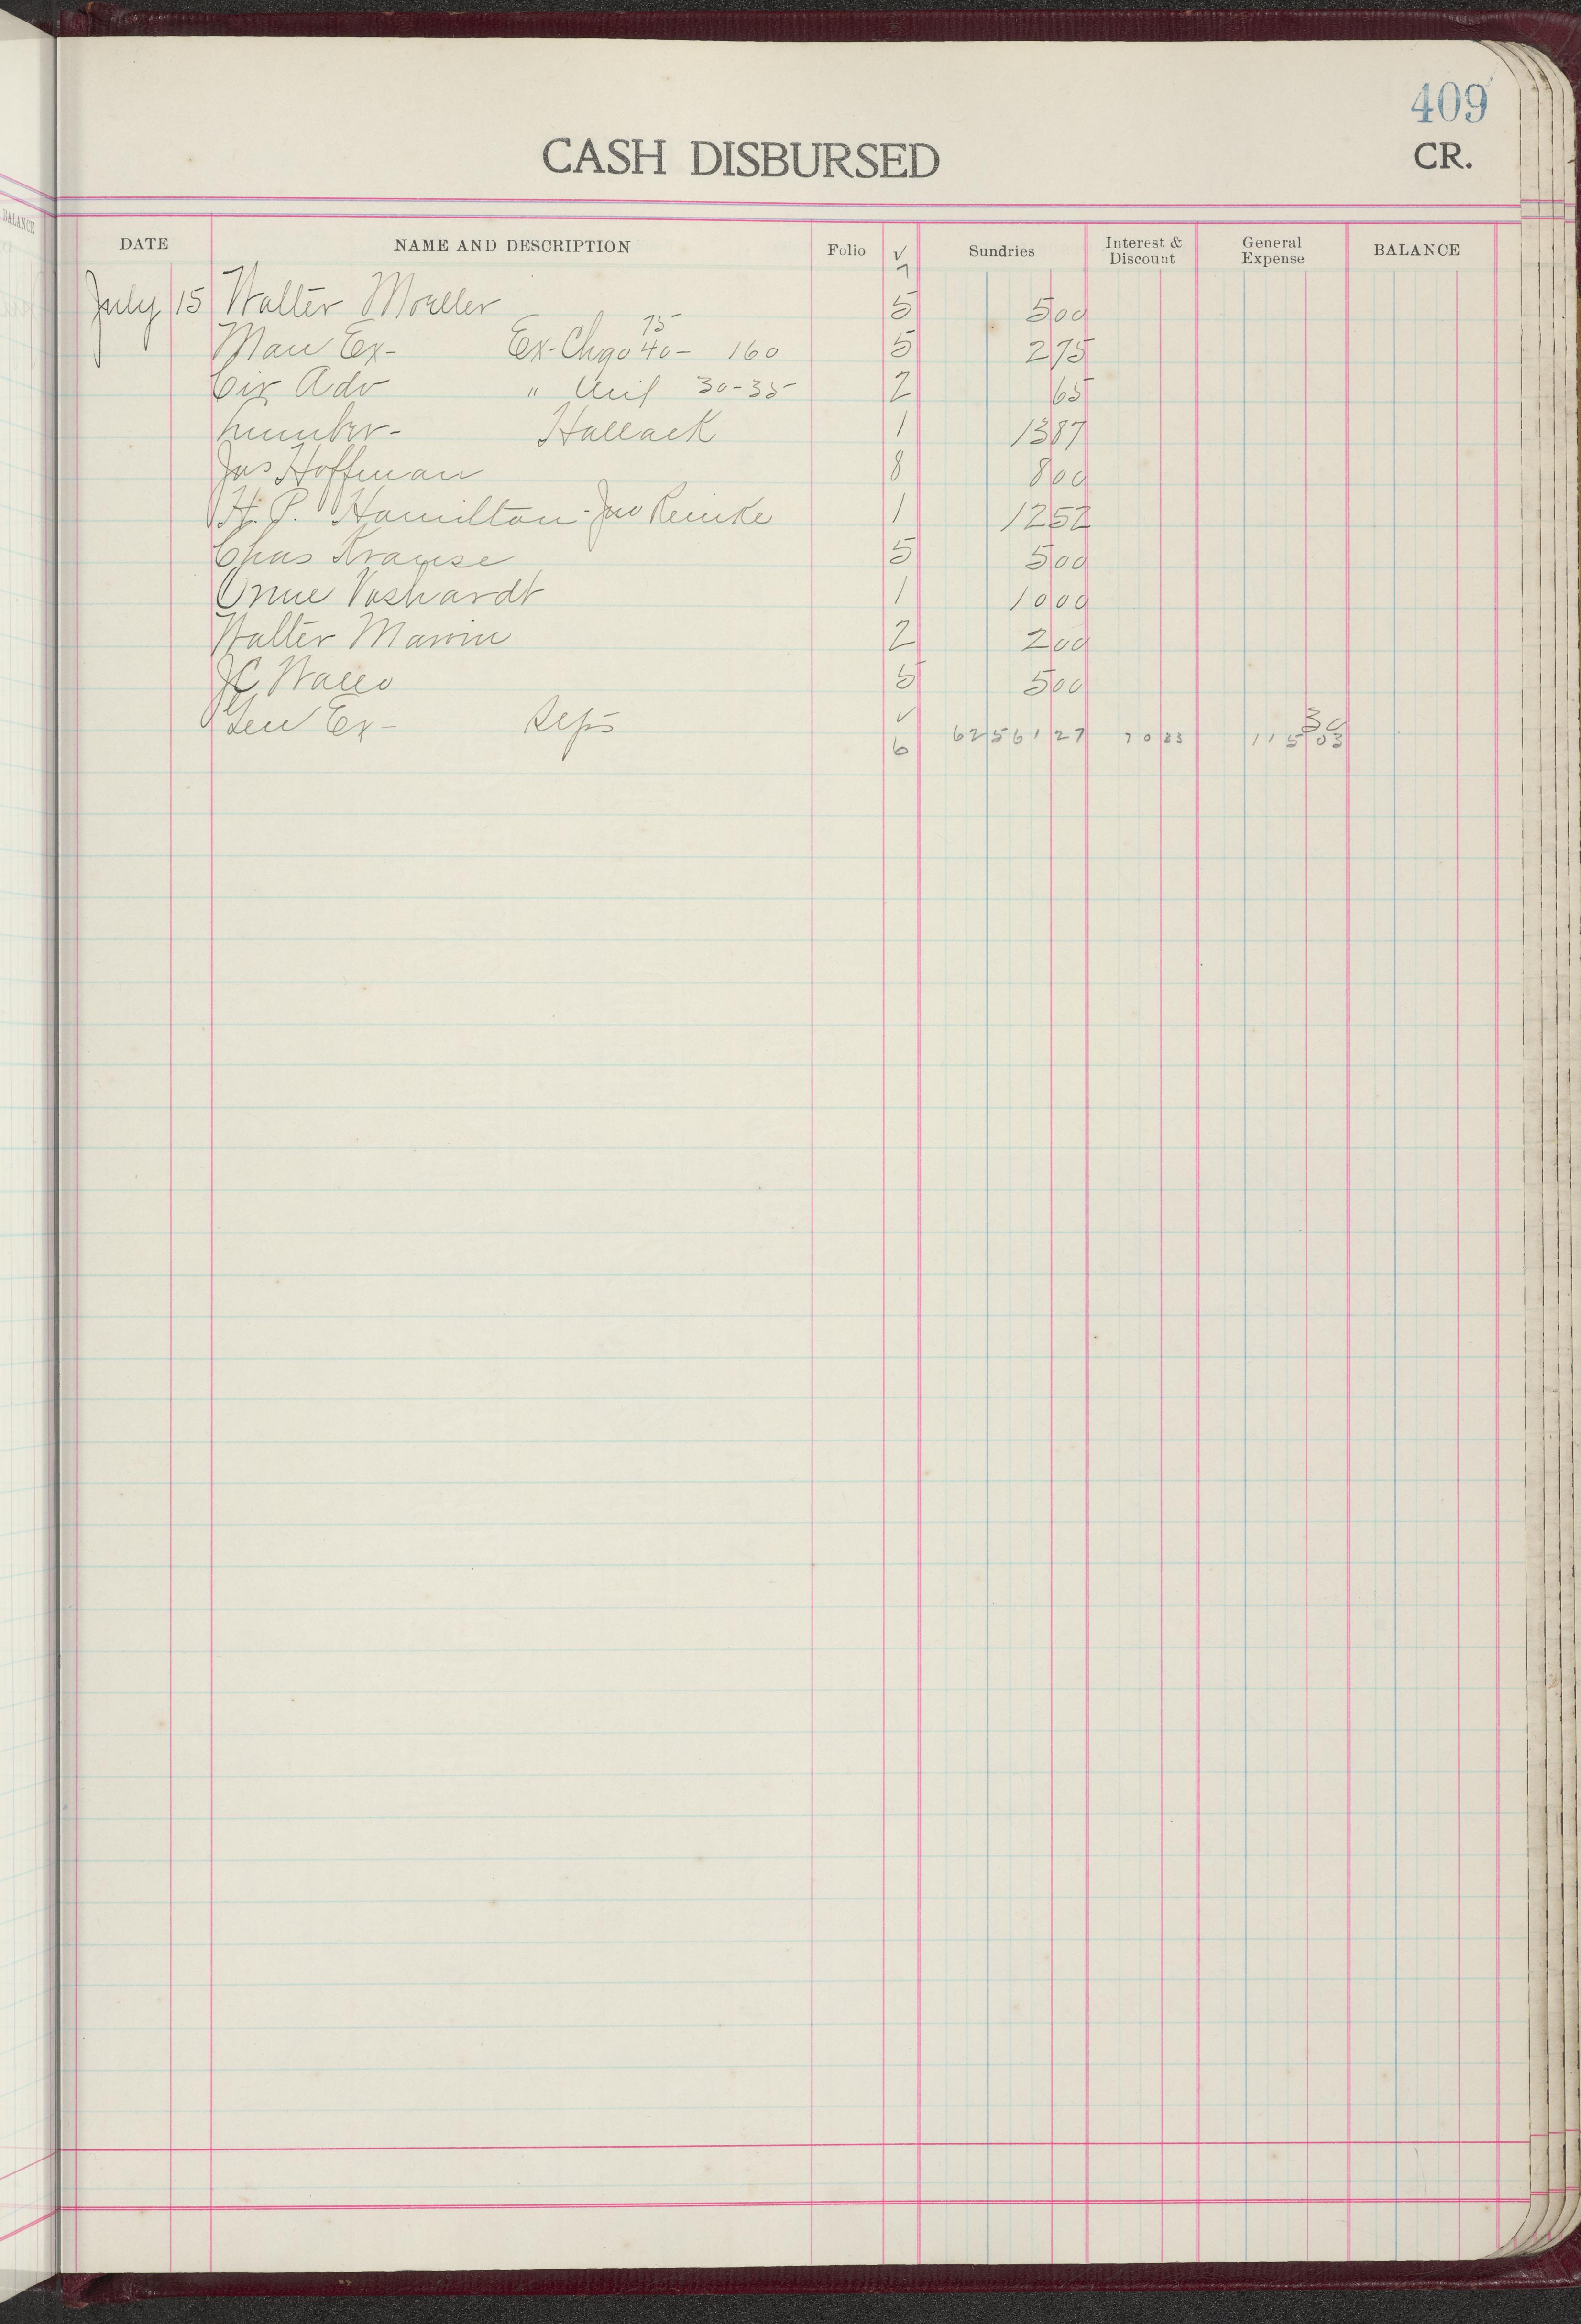 409
CASH DISBURSED CR.
BALANCE
DATE NAME AND DESCRIPTION Folio √ Sundries Interest & Discount General Expense BALANCE
7
July 15 Walter Moeller 5 5 00
75
Man Ex- Ex-Chgo 40- 160 5 2 75
Cir Adv " 30-35 2 65
Lumber- Hallack 1 13 87
Jas Hoffman 8 8 00
H. P. Hamilton - Jno Reinke 1 12 52
Chas Krause 5 5 00
Voshardt 1 10 00
Walter Marvin 2 2 00
JC 5 5 00
Gen Ex- √ 30
6 62561 27 70 83 115 03